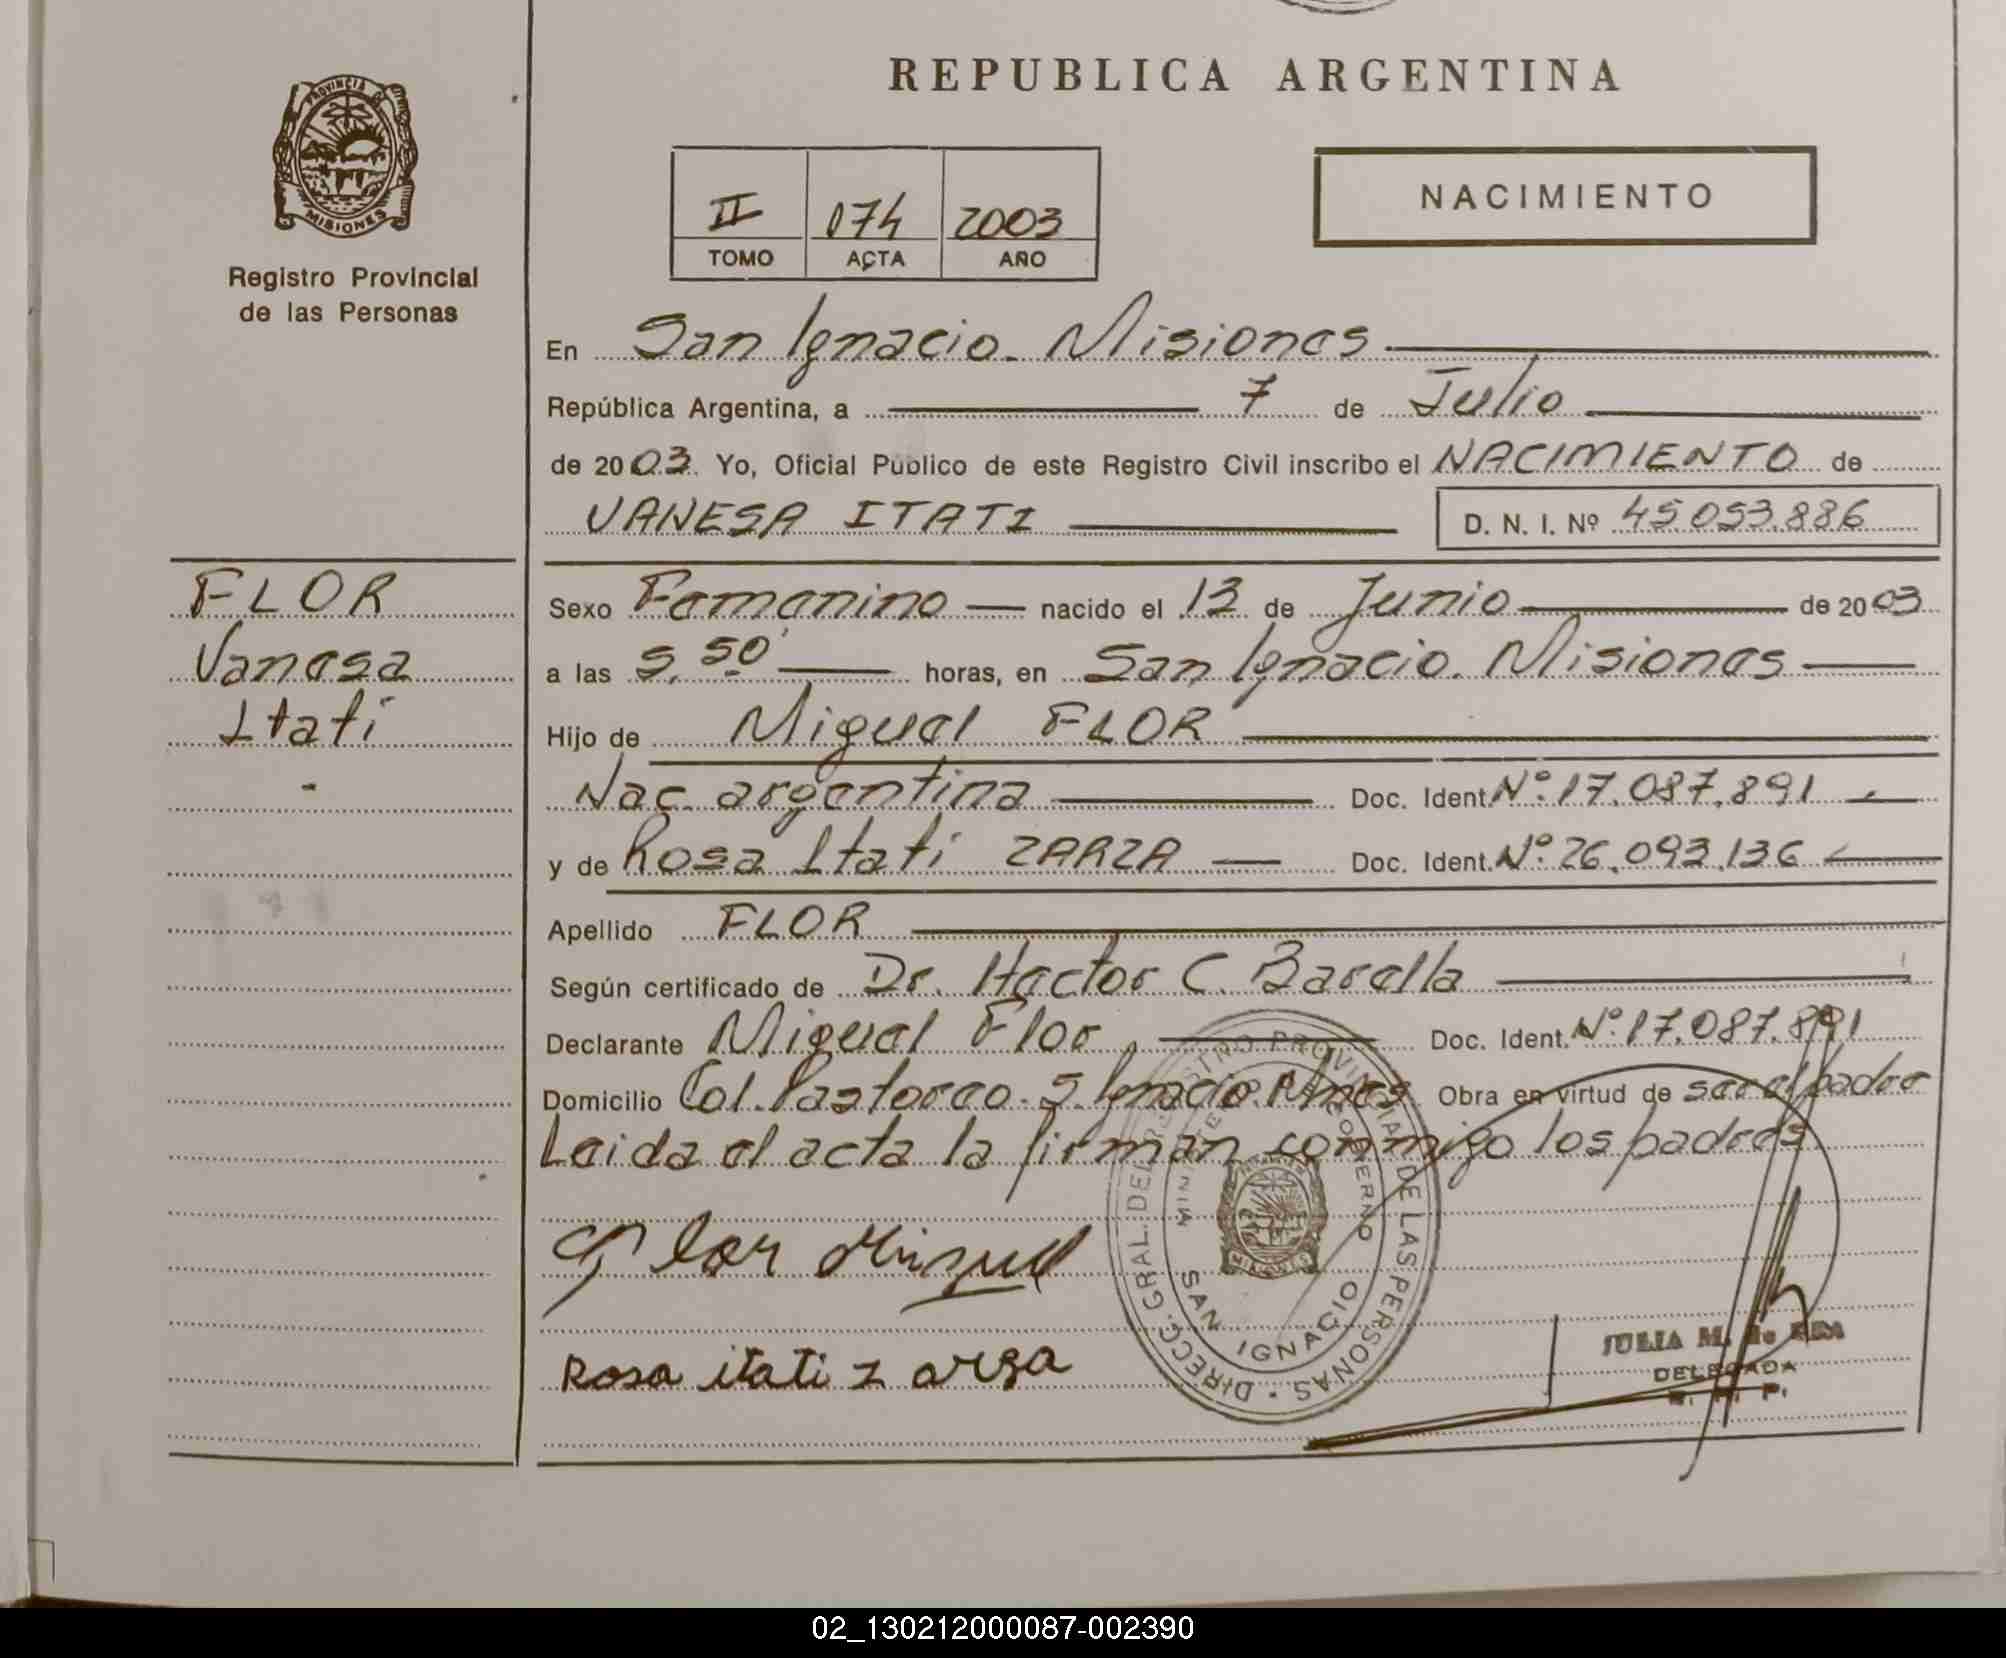 REPUBLICA ARGENTINA
PROVINCIA DE
MISIONES
Registro Provincial
de las Personas
II 074 2003
TOMO ACTA AÑO
NACIMIENTO
En San Ignacio. Misiones
República Argentina, a 7 de Julio
de 2003. Yo, Oficial Público de este Registro Civil inscribo el NACIMIENTO de
VANESA ITATI D. N. I. Nº 45.053.886
FLOR
Vanesa
Itatí
Sexo Femenino nacido el 13 de Junio de 2003
a las 5,50' horas, en San Ignacio. Misiones
Hijo de Miguel FLOR
Nac. argentina Doc. Ident. Nº 17.087.891
y de Rosa Itatí ZARZA Doc. Ident. Nº 26.093.136
Apellido FLOR
Según certificado de Dr. Hector C. Barella
Declarante Miguel Flor. Doc. Ident. Nº 17.087.891
Domicilio Col. Pastoreo. S. Ignacio. Mnes Obra en virtud de ser el padre
Leida el acta la firman conmigo los padres
Flor Miguel
Rosa itati zarza
DIRECC. GRAL. DEL REGISTRO PROVINCIAL DE LAS PERSONAS
MINISTERIO DE GOBIERNO
SAN IGNACIO
MISIONES
JULIA M. de
DELEGADA
R. P. P.
02_130212000087-002390